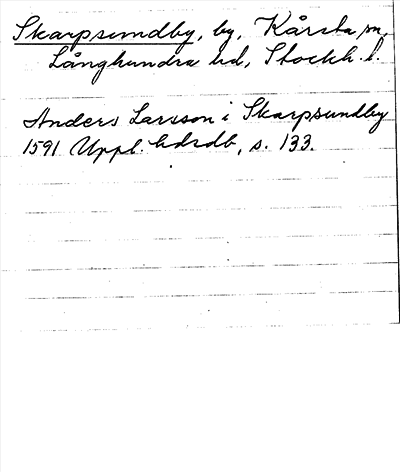 Skarpsundby, by, Kårsta sn,
Långhundra hd, Stockh. l.
Anders Larsson i Skarpsundby
1591 Uppl. hdrdb, s. 133.